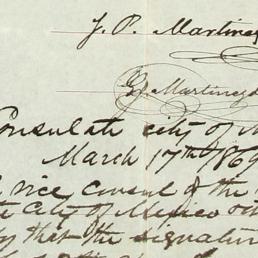 J. P. Martinez
G. Martinez
Consulate city of M
March 17th 1869
vice consul of the
the City of Mexico
that the signatur